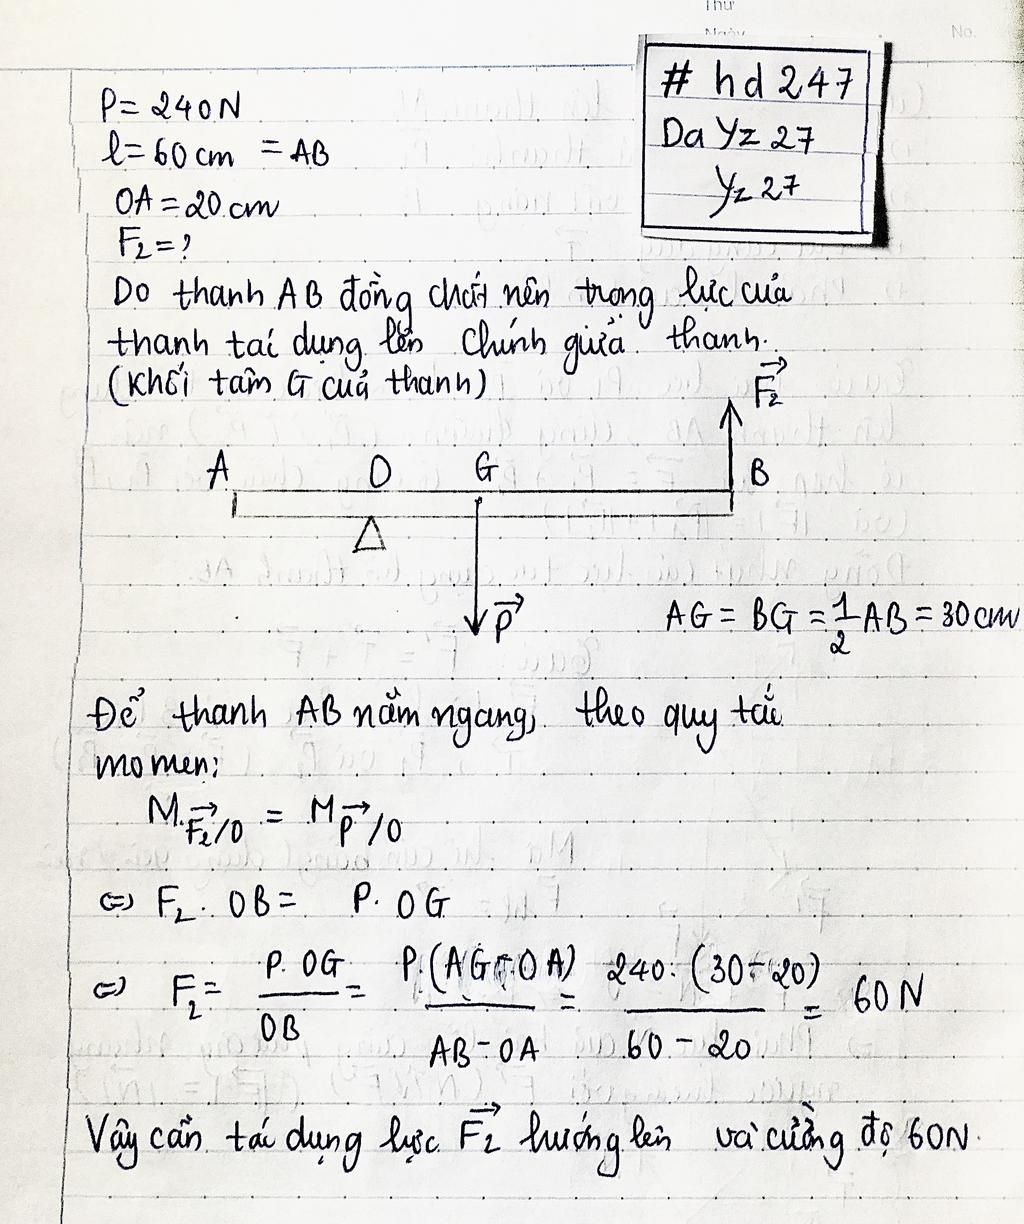 Thứ
Ngày
No.
# hd 247
Da Yz 27
Yz 27
P = 240N
l = 60 cm = AB
OA = 20 cm
F₂ = ?
Do thanh AB đồng chất nên trọng lực của
thanh tác dụng lên chính giữa thanh.
(Khối tâm G của thanh)
F₂→
A O G B
P→
AG = BG = 1/2 AB = 30 cm
Để thanh AB nằm ngang, theo quy tắc
momen:
M F₂→/O = M P→/O
⇔ F₂ . OB = P. OG
⇔ F₂ = P. OG / OB = P. (AG - OA) / AB - OA = 240. (30 - 20) / 60 - 20 = 60 N
Vậy cần tác dụng lực F₂→ hướng lên và cường độ 60N.